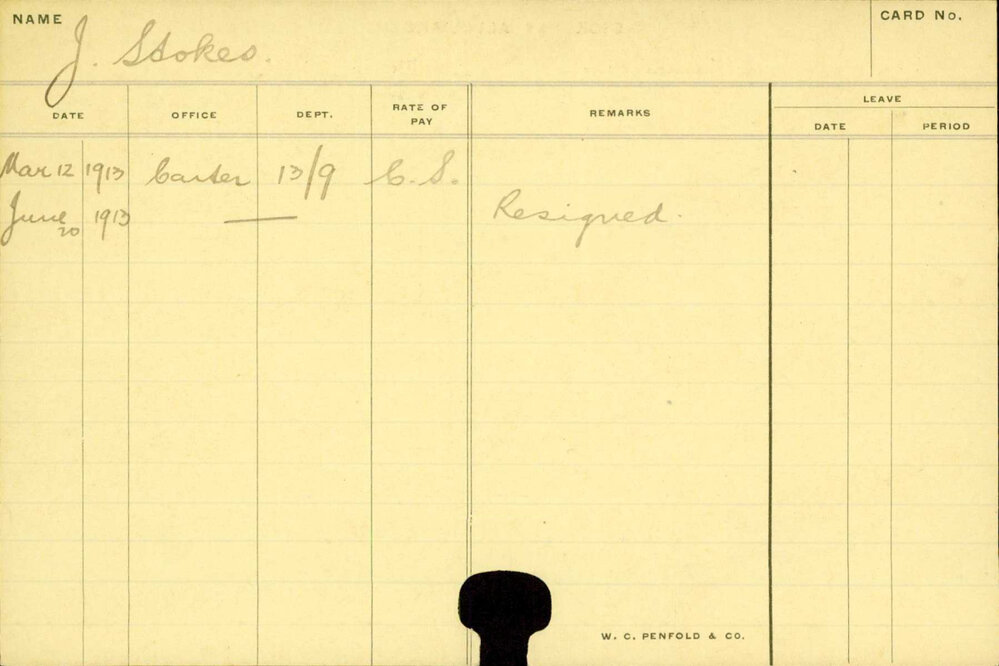 NAME
J. Stokes.
CARD No.
DATE OFFICE DEPT. RATE OF PAY REMARKS LEAVE
DATE PERIOD
Mar 12 1913 Carter 13/9 C.S.
June 20 1913 — Resigned.
W. C. PENFOLD & CO.